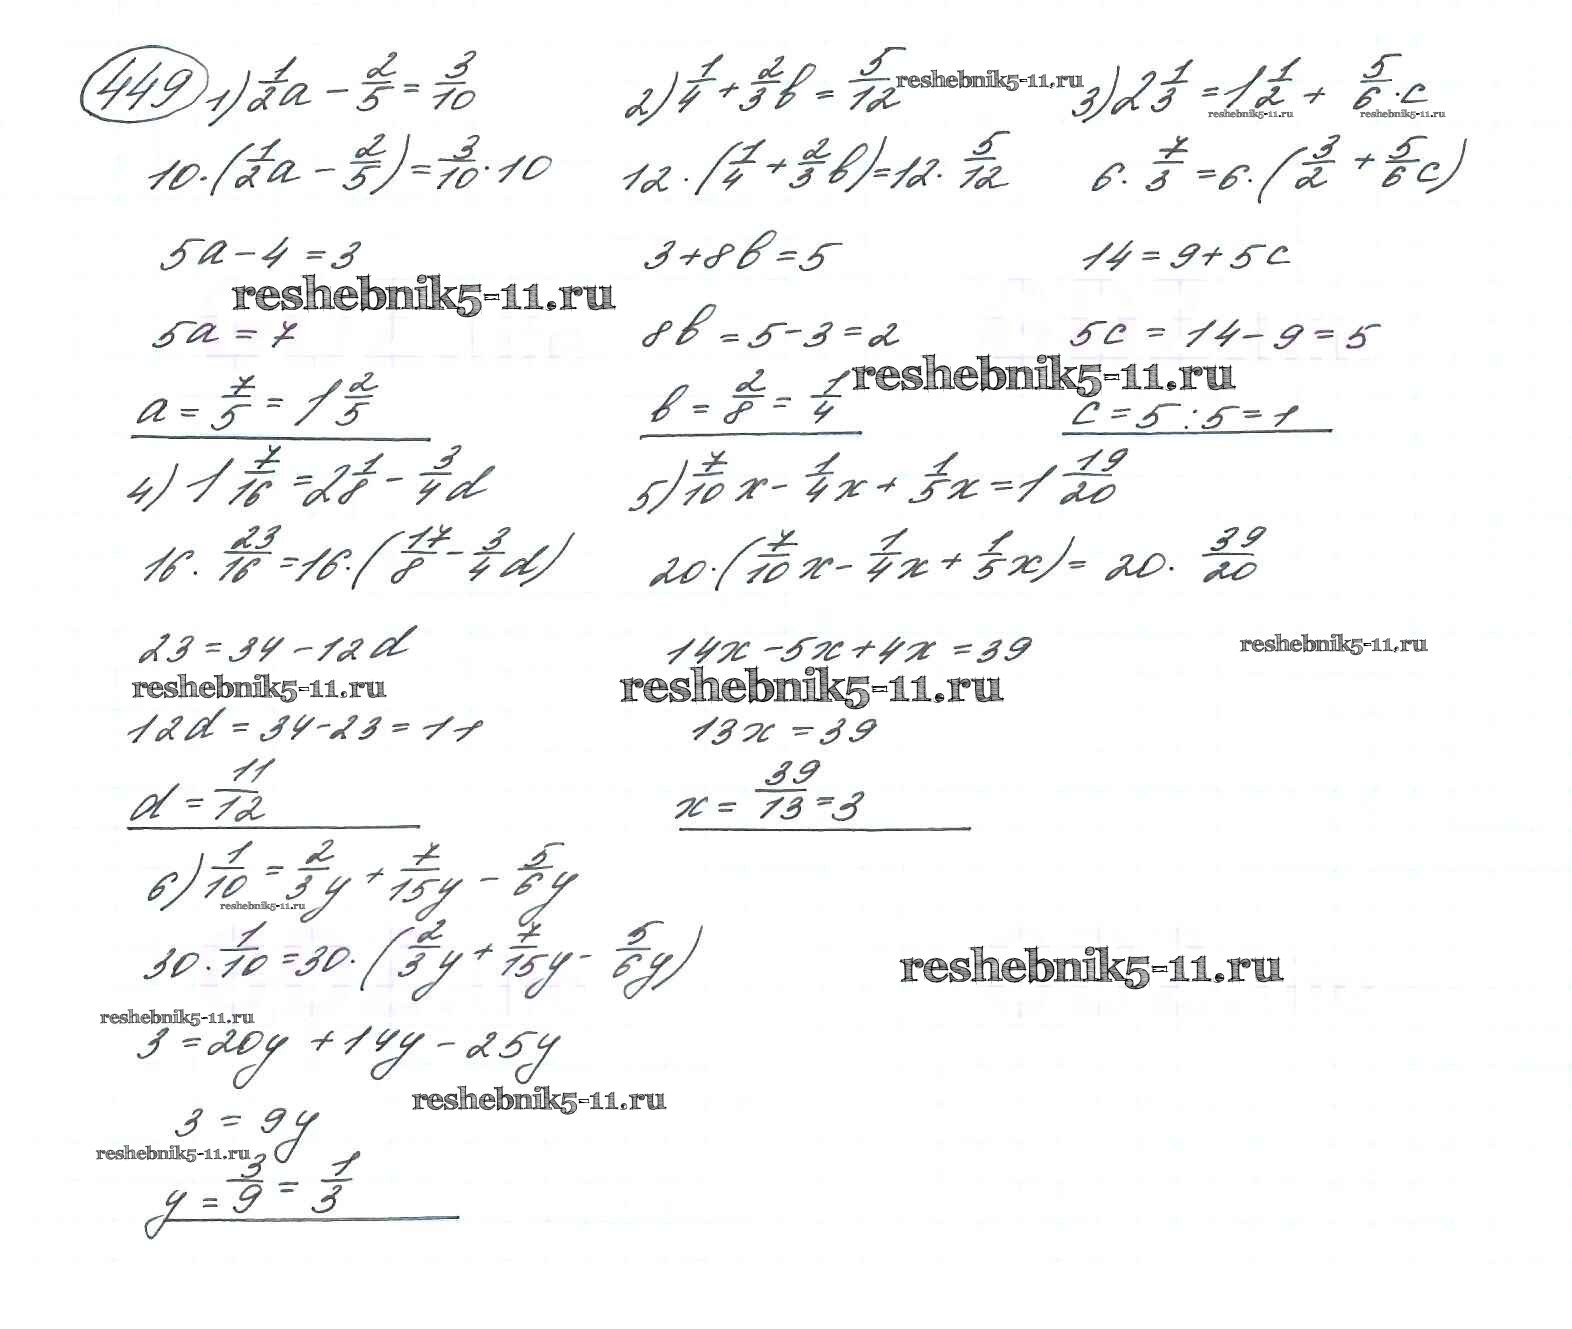 449 1) 1/2 a - 2/5 = 3/10
10·(1/2 a - 2/5) = 3/10·10
5a - 4 = 3
reshebnik5-11.ru
5a = 7
a = 7/5 = 1 2/5
2) 1/4 + 2/3 b = 5/12
reshebnik5-11.ru
12·(1/4 + 2/3 b) = 12·5/12
3 + 8b = 5
8b = 5 - 3 = 2
reshebnik5-11.ru
b = 2/8 = 1/4
3) 2 1/3 = 1 1/2 + 5/6·c
reshebnik5-11.ru
reshebnik5-11.ru
6·7/3 = 6·(3/2 + 5/6 c)
14 = 9 + 5c
5c = 14 - 9 = 5
c = 5 : 5 = 1
4) 1 7/16 = 2 1/8 - 3/4 d
16·23/16 = 16·(17/8 - 3/4 d)
23 = 34 - 12d
reshebnik5-11.ru
12d = 34 - 23 = 11
d = 11/12
5) 7/10 x - 1/4 x + 1/5 x = 1 19/20
20·(7/10 x - 1/4 x + 1/5 x) = 20·39/20
14x - 5x + 4x = 39
reshebnik5-11.ru
reshebnik5-11.ru
13x = 39
x = 39/13 = 3
6) 1/10 = 2/3 y + 7/15 y - 5/6 y
reshebnik5-11.ru
30·1/10 = 30·(2/3 y + 7/15 y - 5/6 y)
reshebnik5-11.ru
reshebnik5-11.ru
3 = 20y + 14y - 25y
reshebnik5-11.ru
3 = 9y
reshebnik5-11.ru
y = 3/9 = 1/3